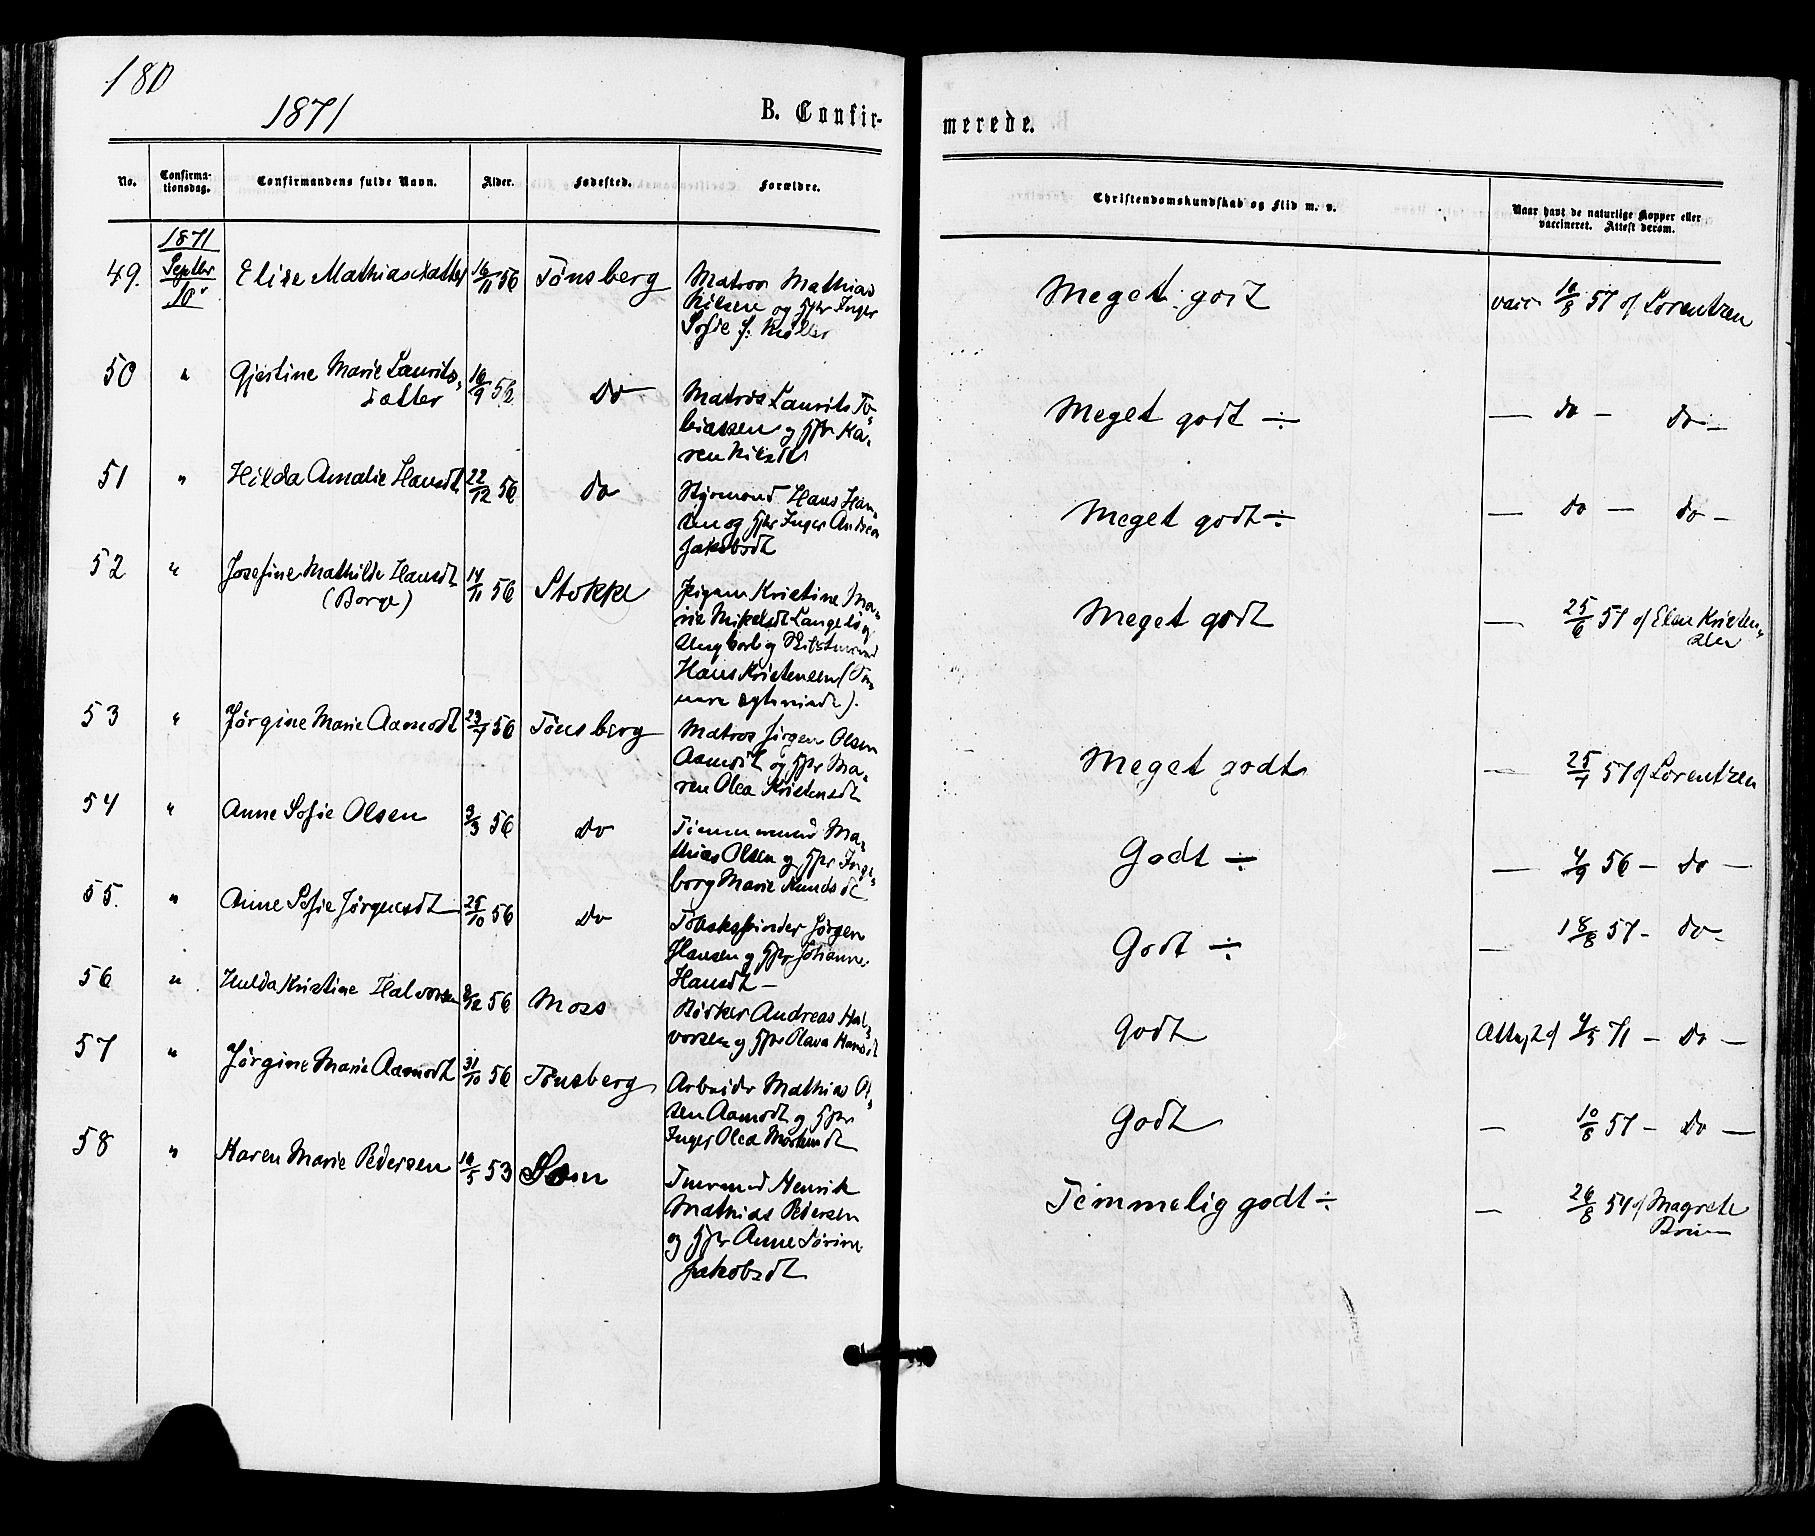 180
1871
B. Confir-
merede.
No.
Confirma-
tionsdag.
Confirmandens fulde Navn.
Alder.
Fødested.
Forældre.
Christendomskundskab og Flid m. v.
Naar havt de naturlige Kopper eller
vaccineret. Attest derom.
1871
49. Septbr 10 Elise Mathiasdatter 16/11 56 Tønsberg Matros Mathias
Nilsen og Hstr Inger
Sofie f. Møller
Meget godt
vacc 10/8 57 af Lorentzen
50 " Gjertine Marie Laurits-
datter 16/9 56 Do Matros Laurits To-
biassen og Hstr Ka-
ren Nilsdtr
Meget godt ÷
— do — do —
51 " Hilda Amalie Hansdt 22/12 56 do Styrmand Hans Han-
sen og Hstr Inger Andrea
Jakobsdt
Meget godt ÷
— do — do —
52 " Josefine Mathilde Hansdt
(Borge) 14/11 56 Stokke Pigen Kristine Ma-
rie Mikelsdt
Ungkarl og
Hans Kristensen
Meget godt
— 25/6 57 af Elen Kristen-
sen
53 " Jørgine Marie Aamodt 23/7 56 Tønsberg Matros Jørgen Olsen
Aamodt og Hstr Ma-
ren Olea Kristensdt
Meget godt
— 25/7 57 af Lorentzen
54 " Anne Sofie Olsen 9/3 56 do Tømmermand Ma-
thias Olsen og Hstr Inge-
borg Marie Knudsdt
Godt ÷
— 4/9 56 — do —
55. " Anne Sofie Jørgensdt 25/10 56 Do Tobakspinder Jørgen
Hansen og Hstr Johanne
Hansdt —
Godt ÷
— 18/8 57 - do -
56 " Hulda Kristine Halvorsen 8/12 56 Moss Andreas Hal-
vorsen og Hstr Olava Hansdt
godt
Attest af 4/5 71 — Do —
57 " Jørgine Marie Aamodt 31/10 56 Tønsberg Arbeider Mathias Ol-
sen Aamodt og Hstr
Inger Olea
Godt
— 10/8 57 — Do —
58 " Karen Marie Pedersen 16/5 53 Henrik
Mathias Pedersen
og Hstr Anne Sørine
Jakobsdt
Temmelig godt ÷
— 26/8 54 af Magrete